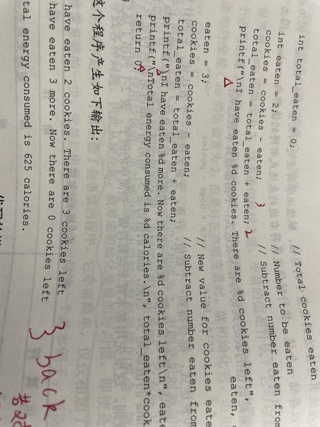 int total_eaten = 0; // Total cookies eaten
int eaten = 2; // Number to be eaten
cookies = cookies - eaten; // Subtract number eaten from
3
total_eaten = total_eaten + eaten; 2
printf("\nI have eaten %d cookies. There are %d cookies left",
eaten,
eaten = 3; // New value for cookies eate
cookies = cookies - eaten; // Subtract number eaten from
total_eaten = total_eaten + eaten;
printf("\nI have eaten %d more. Now there are %d cookies left\n", eate
printf("\nTotal energy consumed is %d calories.\n", total_eaten*cook
return 0;
这个程序产生如下输出:
have eaten 2 cookies. There are 3 cookies left
have eaten 3 more. Now there are 0 cookies left
tal energy consumed is 625 calories.
3 back